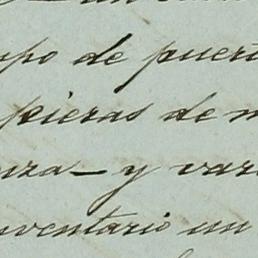 upo de puert
pieras de m
nza - y vari
nventario un